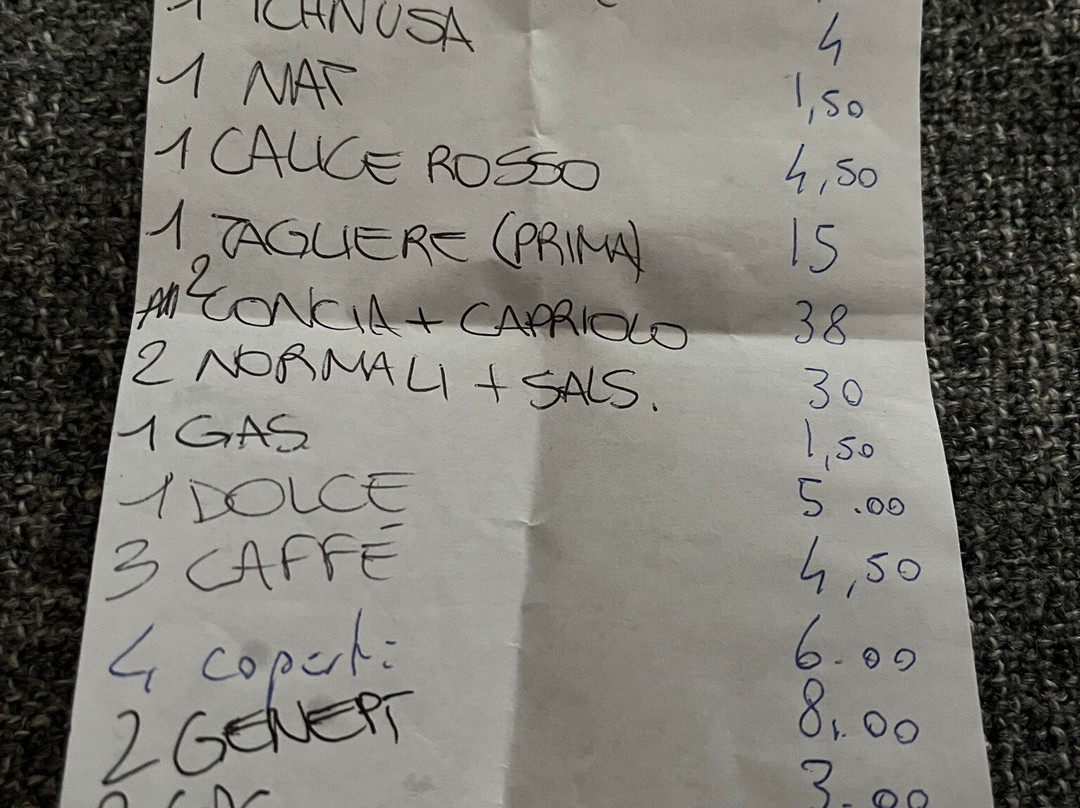 1 ICHNUSA 4
1 NAT 1,50
1 CALICE ROSSO 4,50
1 TAGLIERE (PRIMA) 15
2 CONCIA + CAPRIOLO 38
2 NORMALI + SALS. 30
1 GAS 1,50
1 DOLCE 5.00
3 CAFFÉ 4,50
4 coperti 6.00
2 GENEPI 8,00
3.00